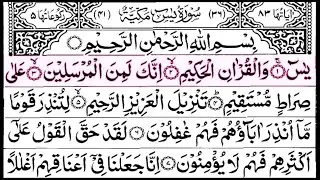 اٰیَاتُهَا ٨٣ (٣٦) سُوْرَةُ يٰسٓ مَكِّيَّةٌ (٤١) رُكُوْعَاتُهَا ٥
بِسْمِ اللهِ الرَّحْمٰنِ الرَّحِيْمِ
يٰسٓ ۚ‏﴿۱﴾ وَالْقُرْاٰنِ الْحَكِيْمِ ۙ‏﴿۲﴾ اِنَّكَ لَمِنَ الْمُرْسَلِيْنَ ۙ‏﴿۳﴾ عَلٰى
صِرَاطٍ مُّسْتَقِيْمٍ ؕ‏﴿۴﴾ تَنْزِيْلَ الْعَزِيْزِ الرَّحِيْمِ ۙ‏﴿۵﴾ لِتُنْذِرَ قَوْمًا
مَّاۤ اُنْذِرَ اٰبَآؤُهُمْ فَهُمْ غٰفِلُوْنَ ‏﴿۶﴾ لَقَدْ حَقَّ الْقَوْلُ عَلٰٓى
اَكْثَرِهِمْ فَهُمْ لَا يُؤْمِنُوْنَ ‏﴿۷﴾ اِنَّا جَعَلْنَا فِىْۤ اَعْنَاقِهِمْ اَغْلٰلًا